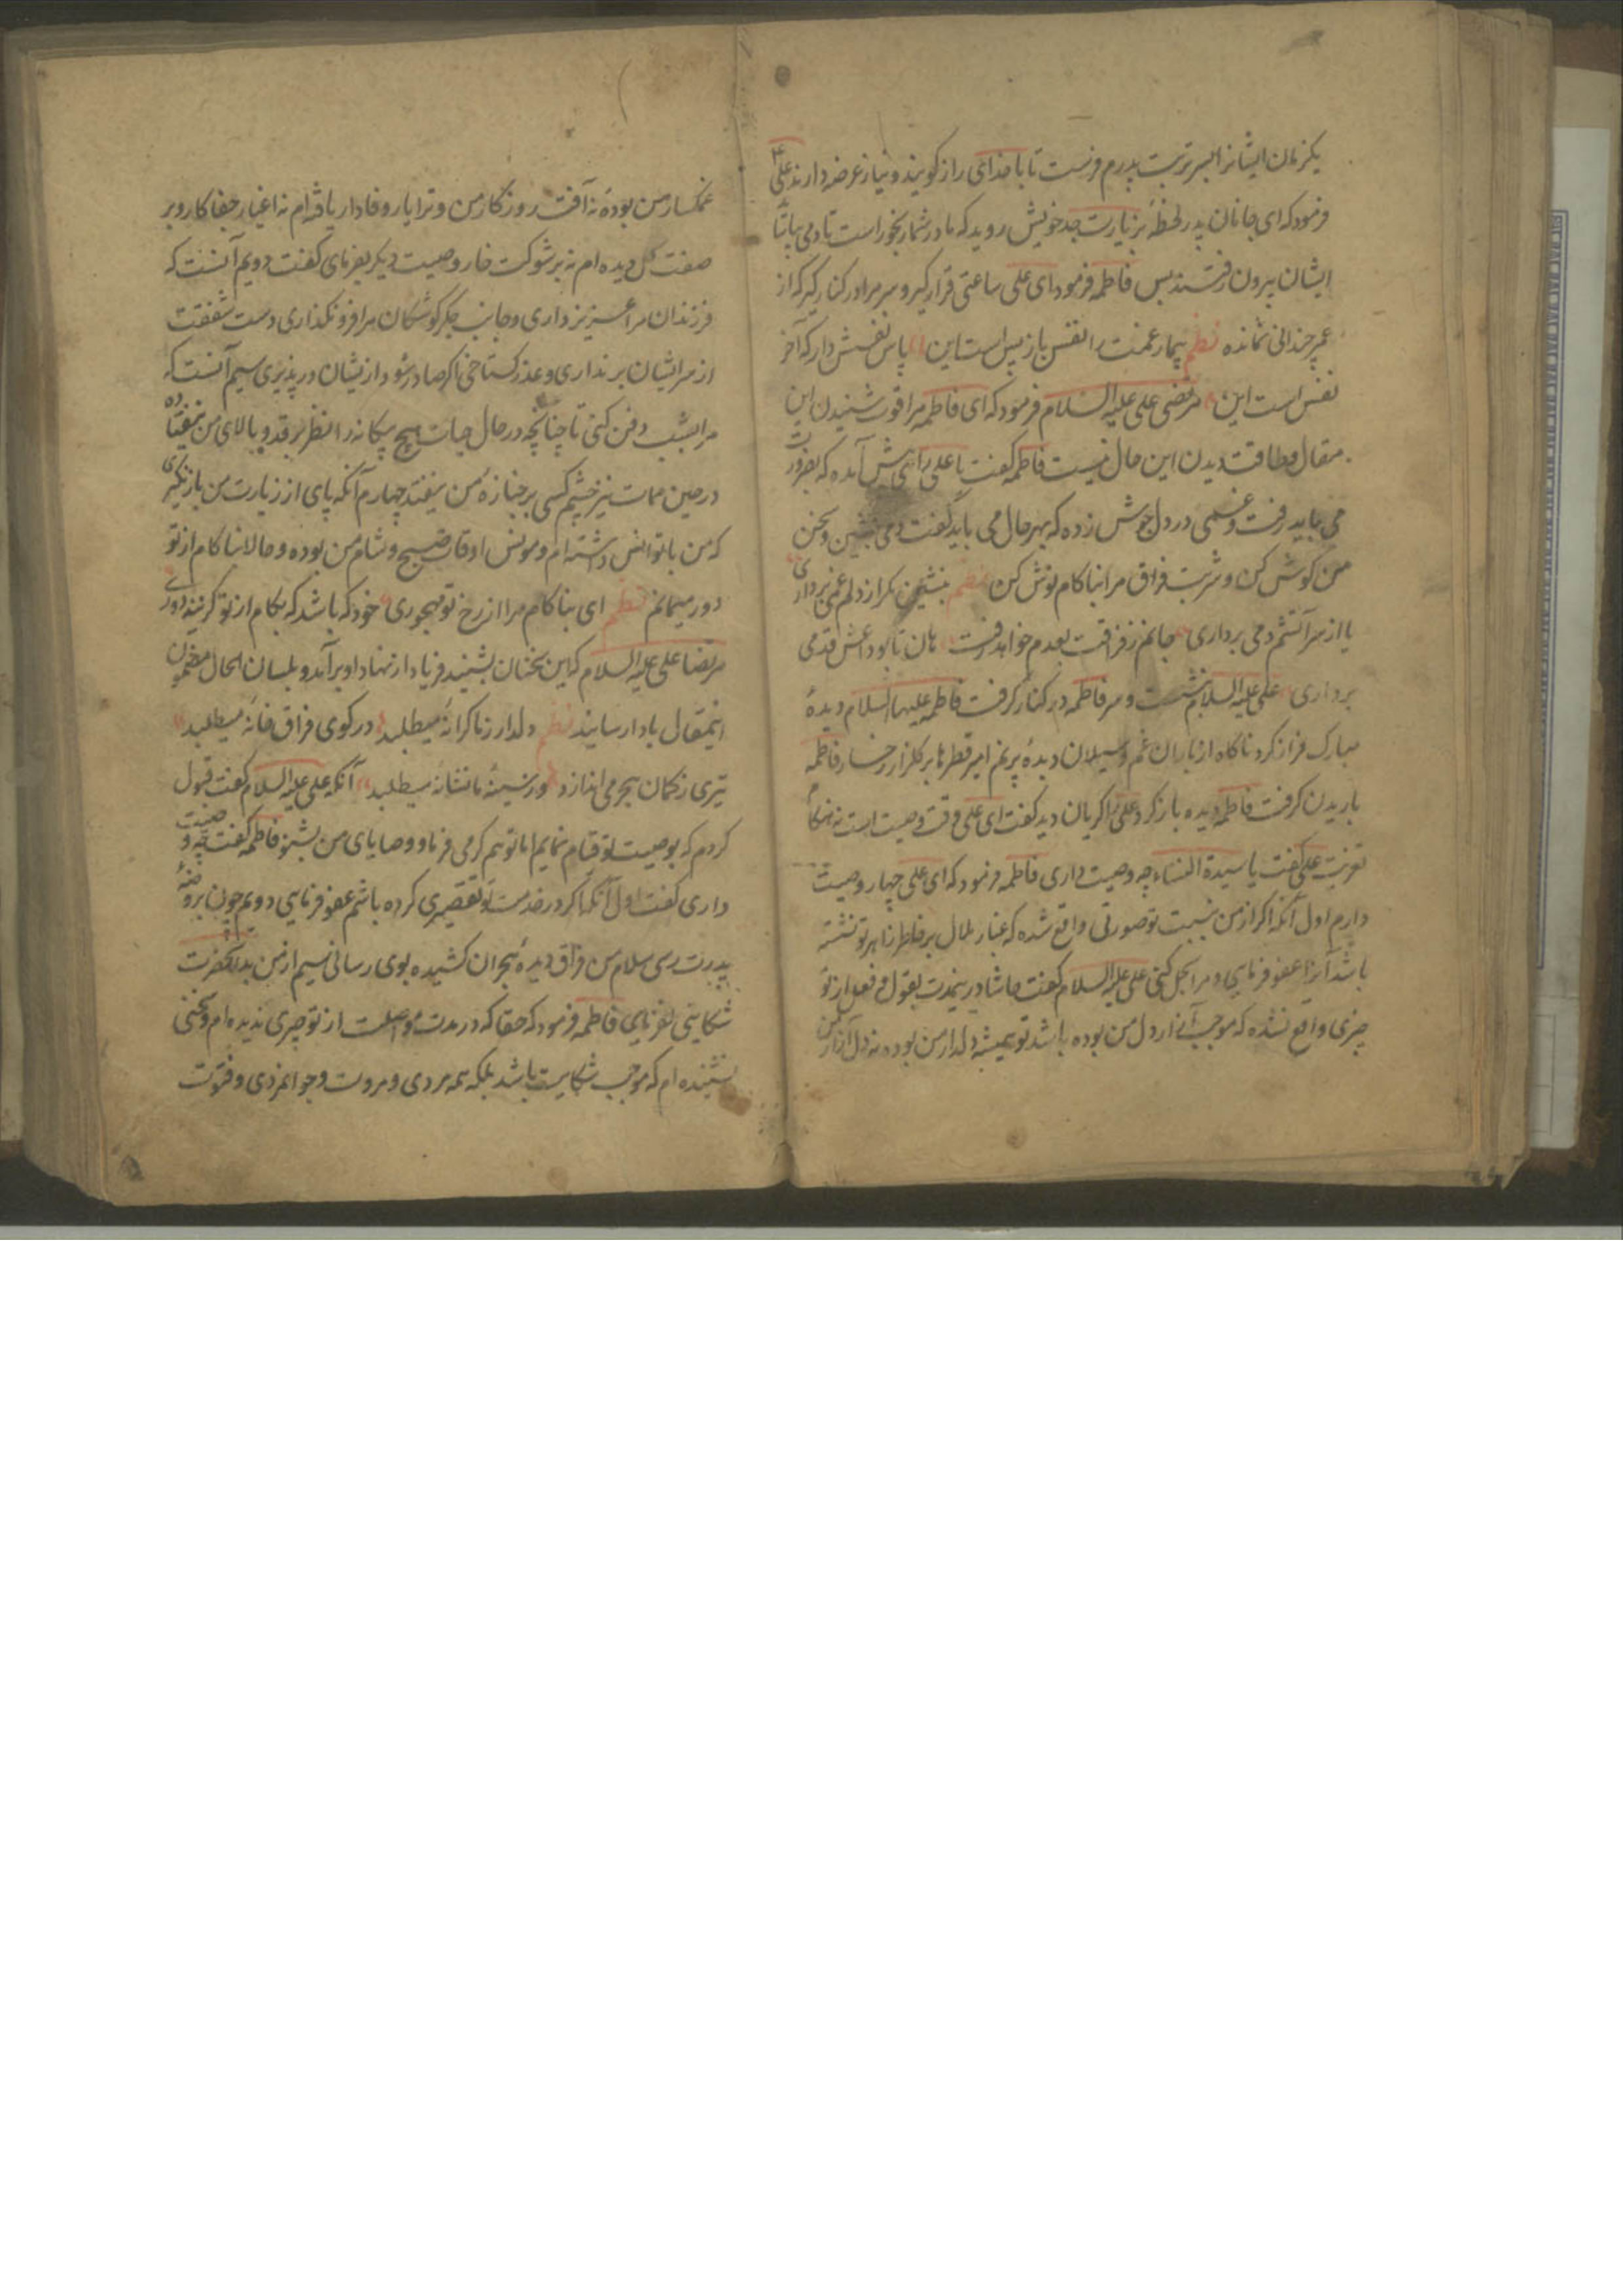 یکزمان ایشانرا بسر تربت پدرم فرست تا با خدای راز کویند و نیاز عرضه دارند علی
فرمود که ای جانان پدر لحظهٔ بزیارت جد خویش روید که مادر شما رنجور است تا دمی
ایشان بیرون رفتند پس فاطمه فرمود ای علی ساعتی قرار گیر و سر مرا در کنار گیر که از
عمر چندانی نمانده نظم بیمار غمت را نفس بازپس است این پاس نفسش دار که آخر
نفس است این مرتضی علی علیه السلام فرمود که ای فاطمه مرا قوت شنیدن این
مقال و طاقت دیدن این حال نیست فاطمه گفت یا علی راهی پیش آمده که بضرورت
می باید رفت و غمی در دل جوش زده که بهر حال می باید گفت دمی بنشین و سخن
من کوش کن و شربت فراق مرا بناکام نوش کن نظم بنشین مکر از دلم غمی برداری
یا از سر آتشم دمی برداری جانم ز فراقت بعدم خواهد رفت هان تا بوداعش قدمی
برداری علی علیه السلام بنشست و سر فاطمه در کنار گرفت فاطمه علیها السلام دیدهٔ
مبارک فراز کرد ناگاه از باران غم و سیلان دیدهٔ پر نم امیر قطرها بر گلزار رخسار فاطمه
باریدن گرفت فاطمه دیده باز کرد علی را گریان دید گفت ای علی وقت وصیت است نه هنکام
تعزیت علی گفت یا سیدة النساء چه وصیت داری فاطمه فرمود که ای علی چهار وصیت
دارم اول آنکه اگر از من نسبت بتو صورتی واقع شده که غبار ملال بر خاطر نشسته
باشد آنرا عفو فرمایی و مرا بحل کنی علی علیه السلام گفت حاشا در ینمدت بقول و فعل از تو
چیزی واقع نشده که موجب آزار دل من بوده باشد تو همیشه دلدار من بوده نه دل آزار من
غمکسار من بودهٔ نه آفت روزکار من و ترا یار وفادار یافته ام نه اغیار جفاکار و بر
صفت گل دیده ام نه بر شوکت خار وصیت دیکر بفرمای گفت دویم آنست که
فرزندان مرا عزیز داری و جانب جگر کوشکان مرا فرو نگذاری دست شفقت
از سر ایشان برنداری و عذر کستاخی اگر صادر شود از یشان در پذیری سیم آنست که
مرا بشب دفن کنی تا چنانچه در حال حیات هیچ بیکانه را نظر بر قد و بالای من نیفتاده
در حین ممات نیز چشم کسی بر جنازهٔ من نیفتد چهارم آنکه پای از زیارت من بازنگیری
که من با تو انس داشته ام و مونس اوقات صبح و شام من بوده و حالا بناکام از تو
دور میمانم نظم ای بناکام مرا از رخ تو مهجوری خود که باشد که بکام از تو گزیند دوری
مرتضا علی علیه السلام که این سخنان بشنید فریاد از نهاد او برآمد و بلسان الحال مضمون
اینمقال بادا رسانید نظم دلدار ز ما کرانه میطلبد در کوی فراق خانه میطلبد
تیری ز کمان هجر می اندازد ور سینهٔ ما نشانه میطلبد آنکه علی علیه السلام گفت قبول
کردم که بوصیت تو قیام نمایم اما تو هم کرمی فرما و وصایای من بشنو فاطمه گفت چه وصیت
داری گفت اول آنکه اگر در خدمت تو تقصیری کرده باشم عفو فرمایی دویم چون بروضهٔ
پدرت رسی سلام من فراق دیدهٔ هجران کشیده بوی رسانی سیم از من بدانحضرت
شکایتی نفرمای فاطمه فرمود که حقا که در مدت مواصلت از تو چیزی ندیده ام و سخنی
نشنیده ام که موجب شکایت باشد بلکه همه مردی و مروت و جوانمردی و فتوت